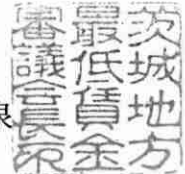 茨城地方
最低賃金
審議会長印